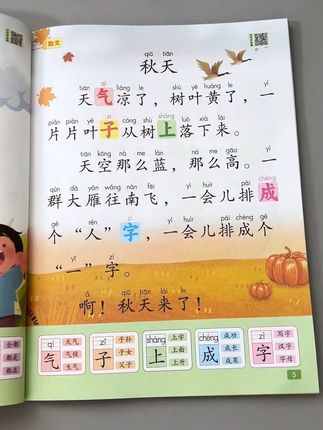 散文
qiū tiān
秋天
tiān qì liáng le shù yè huáng le yí
天气凉了，树叶黄了，一
piàn piàn yè zi cóng shù shàng luò xià lái
片片叶子从树上落下来。
tiān kōng nà me lán nà me gāo yì
天空那么蓝，那么高。一
qún dà yàn wǎng nán fēi yí huìr pái chéng
群大雁往南飞，一会儿排成
gè rén zì yí huìr pái chéng gè
个“人”字，一会儿排成个
yī zì
“一”字。
à qiū tiān lái le
啊！秋天来了！
qì
气
天气
气候
生气
zǐ
子
子孙
子女
父子
shàng
上
上学
上面
上升
chéng
成
成功
成长
成果
zì
字
写字
汉字
字母
全都
都是
都在
5